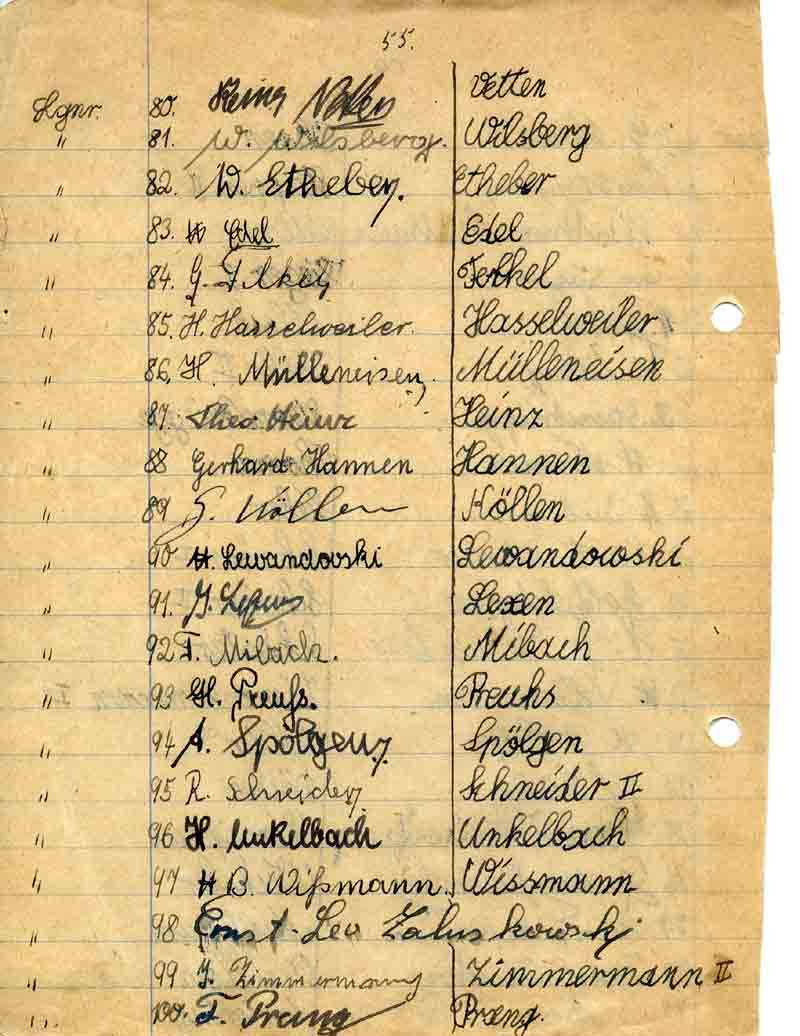 55.
Lgnr. 80. Heinz Vetten Vetten
" 81. W. Wilsberg. Wilsberg
" 82. W. Etheber. Etheber
" 83. H Edel Edel
" 84. G. Ferkel
" 85. H. Hasselweiler. Hasselweiler
" 86. H. Mülleneisen Mülleneisen
" 87. Theo Heinz Heinz
" 88 Gerhard Hannen Hannen
" 89 Köllen Köllen
" 90 H. Lewandovski Lewandowski
" 91. J. Lexen
" 92 T. Mibach. Mibach
" 93 H. Preuß. Preuhs
" 94 A. Spölgen Spölgen
" 95 R. Schneider Schneider II
" 96 H. Unkelbach Unkelbach
" 97 H B. Wißmann. Wissmann
" 98 Ernst-Leo Zaluskowski
" 99 J. Zimmermann Zimmermann II
" 100. T. Prang Prang.